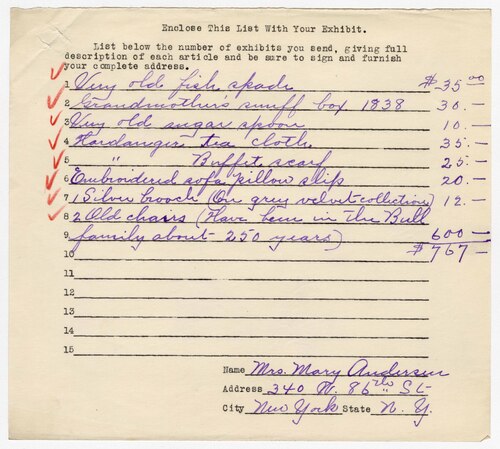 Enclose This List With Your Exhibit.
List below the number of exhibits you send, giving full
description of each article and be sure to sign and furnish
your complete address.
1 Very old fish spade $35.00
2 Grandmother's snuff box 1838 30.—
3 Very old sugar spoon 10.—
4 Hardanger tea cloth 35.—
5 " Buffet scarf 25.—
6 Embroidered sofa pillow slip 20.—
7 1 Silver brooch (On grey velvet collection) 12.—
8 2 Old chairs (Have been in the Bull
9 family about 250 years) 600—
10 $767—
11
12
13
14
15
Name Mrs. Mary Andersen
Address 340 W. 86th St
City New York State N. Y.